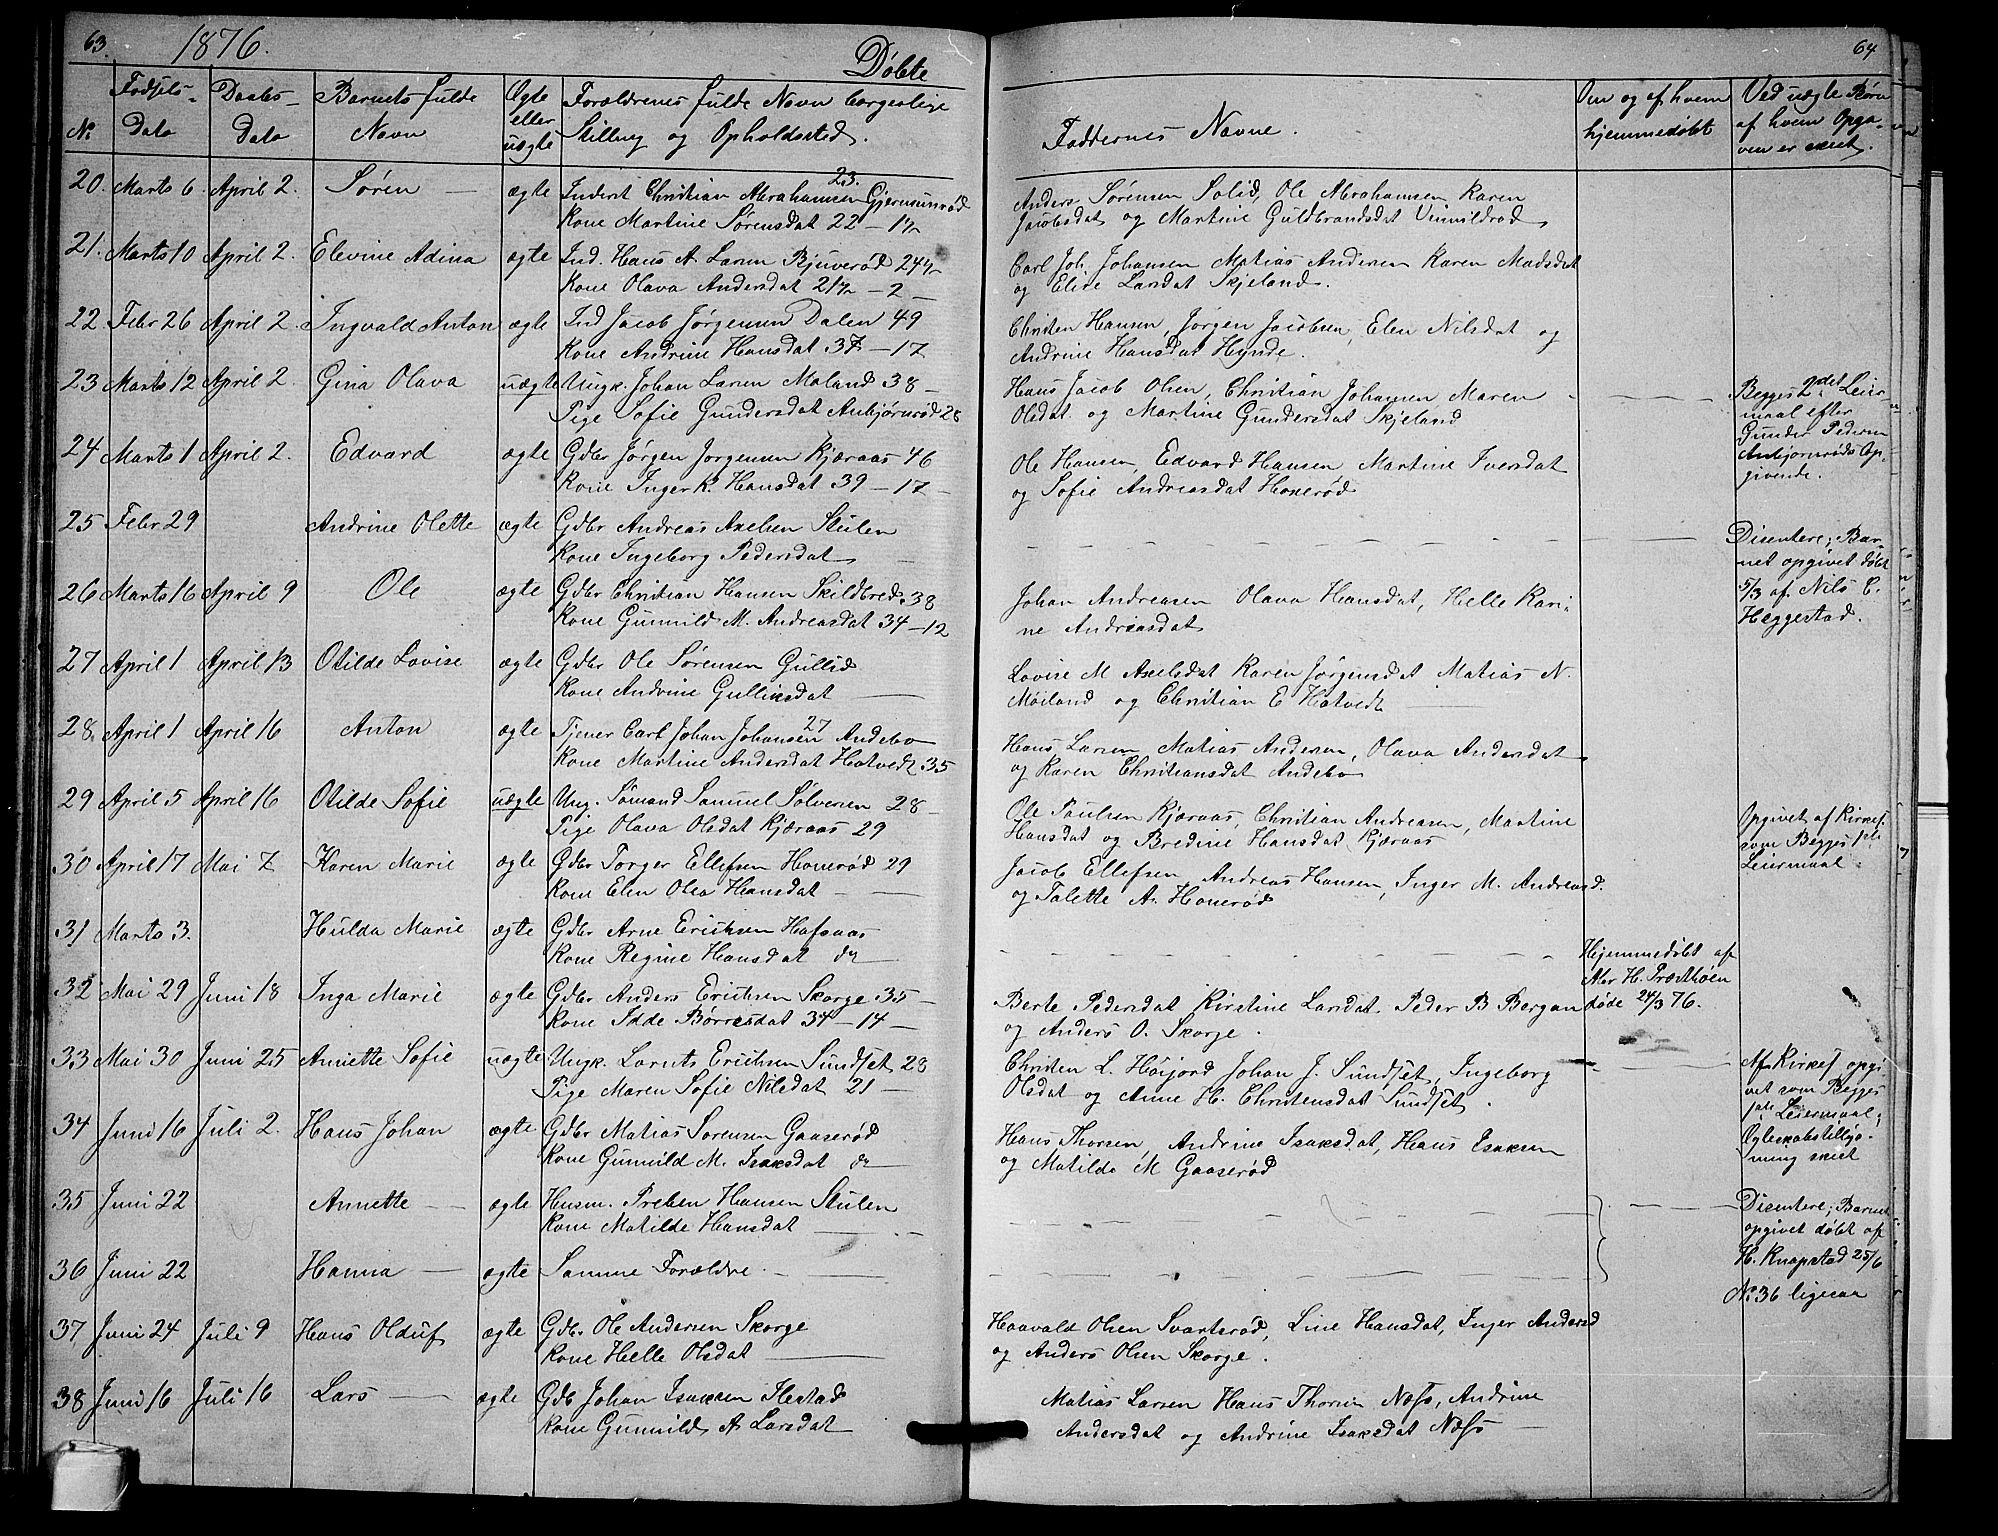 63. 1876. Døbte 64
No Fødsels- Dato
Daabs- Dato
Barnets fulde Navn
Ægte eller uægte
Forældrenes fulde Navn borgerlige Stilling og Opholdssted.
Faddernes Navne.
Om og af hvem hjemmedøbt
Ved uægte Børn af hvem Opgaven er skeet.
20. Marts 6. April 2. Søren — ægte Inderst Christian Abrahamsen 23. Gjermunrød
Kone Martine Sørensdat 22 — 1½
Anders Sørensen Solid, Ole Abrahamsen Karen
Jacobsdat og Martine Guldbrandsdat Vinnildrød
21. Marts 10 April 2. Elevine Adina ægte Ind. Hans A. Larsen Bjuerød 24½
Kone Olava Andersdat 21½ — 2 —
Carl Joh. Johansen Matias Andersen Karen Madsdat
og Elise Larsdat Skjeland.
22 Febr 26 April 2. Ingvald Anton ægte Ind Jacob Jørgensen Dalen 49
Kone Andrine Hansdat 37 — 17
Christen Hansen, Jørgen Jacobsen, Elen Nilsdat og
Andrine Hansdat Hynde.
23 Marts 12 April 2. Gina Olava uægte Ungk. Johan Larsen Moland 38 —
Pige Sofie Gundersdat Anbjørnrød 28
Hans Jacob Olsen, Christian Johansen Maren
Olsdat og Martine Gundersdat Skjeland
Begges 2det Leier-
maal efter
Gunder Pedersen
Anbjørnrøds Op-
givende.
24 Marts 1 April 2. Edvard ægte Gdbr Jørgen Jørgensen Kjæraas 46
Kone Inger K. Hansdat 39 — 17 —
Ole Hansen, Edvard Hansen Martine Iversdat
og Sofie Andreasdat Honerød
25 Febr 29 Andrine Olette ægte Gdbr Andreas Axelsen Stulen
Kone Ingeborg Pedersdat —
Disentere; Bar-
net opgivet døbt
5/3 af Nils C.
Heggestad.
26 Marts 16 April 9 Ole ægte Gdbr Christian Hansen Skildbred. 38
Kone Gunnild M. Andreasdat 34 — 12
Johan Andreasen Olava Hansdat, Helle Kari-
ne Andreasdat
27 April 1 April 13 Otilde Lovise ægte Gdbr Ole Sørensen Gullid
Kone Andrine Gulliksdat —
Lovise M Axelsdat Karen Jørgensdat Matias N.
Møiland og Christian E Hotvedt
28. April 1 April 16 Anton ægte Tjener Carl Johan Johansen 27 Andebo
Kone Martine Andersdat Hotvedt 35
Hans Larsen, Matias Andersen, Olava Andersdat
og Karen Christiansdat Andebo
29 April 5 April 16 Otilde Sofie uægte Ung. Sømand Samuel Sølvesen 28 —
Pige Olava Olsdat Kjæraas 29
Ole Paulsen Kjæraas, Christian Andreasen, Martine
Hansdat og Bredine Hansdat Kjæraas
Opgivet af Kirkes.
som Begges 1ste
Leiermaal
30 April 17 Mai 7 Karen Marie ægte Gdbr Torger Ellefsen Honerød 29
Kone Elen Olea Hansdat —
Jacob Ellefsen, Andreas Hansen, Inger M. Andreasd.
og Talette A. Honerød
31 Marts 3. Hulda Marie ægte Gdbr Arne Erichsen Hafsaas
Kone Regine Hansdat do —
Hjemmedøbt af
Abr H. Præsthoen
døde 24/3 76.
32 Mai 29 Juni 18 Inga Marie ægte Gdbr Anders Erichsen Skorge 35 —
Kone Idde Børresdat 34 — 14 —
Berte Pedersdat Kirstine Larsdat. Peder B Bergan
og Anders O. Skorge.
33 Mai 30 Juni 25 Annette Sofie uægte Ungk. Larnts Erichsen Sundset 28
Pige Maren Sofie Nilsdat 21 —
Christen L. Høijord Johan J. Sundset, Ingeborg
Olsdat og Anne H. Christensdat Sundset.
Af Kirkes opgi
vet som Begges
1ste Leiermaal;
Ægteskabstillys-
ning skeet
34 Juni 16 Juli 2. Hans Johan ægte Gdbr Matias Sørensen Gaaserød
Kone Gunnild M. Isaksdat do —
Hans Thorsen, Andrine Isaksdat, Hans Isaksen
og Matilde M Gaaserød
35 Juni 22 Annette — ægte Husm. Preben Hansen Stulen
Kone Matilde Hansdat —
Disentere; Barnet
opgivet døbt af
H. Knapstad 25/6
36 Juni 22 Hanna — ægte Samme Forældre. —
No 36 ligesaa
37 Juni 24 Juli 9 Hans Olduf ægte Gdb. Ole Andersen Skorge
Kone Helle Olsdat —
Haavald Olsen Svartsrød, Line Hansdat, Inger Andersd
og Anders Olsen Skorge.
38 Juni 16 Juli 16 Lars — ægte Gdb Johan Isaksen Ilestad
Kone Gunnild A Larsdat
Matias Larsen Hans Thorsen Næss, Andrine
Andersdat og Andrine Isaksdat Næss —